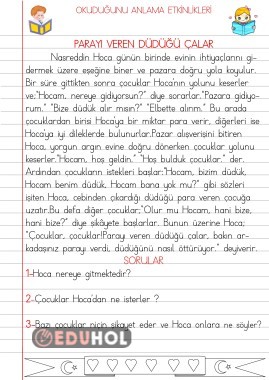 OKUDUĞUNU ANLAMA ETKİNLİKLERİ
PARAYI VEREN DÜDÜĞÜ ÇALAR
Nasreddin Hoca günün birinde evinin ihtiyaçlarını gi-
dermek üzere eşeğine biner ve pazara doğru yola koyulur.
Bir süre gittikten sonra çocuklar Hoca'nın yolunu keserler
ve;"Hocam, nereye gidiyorsun?" diye sorarlar."Pazara gidiyo-
rum." "Bize düdük alır mısın?" "Elbette alırım." Bu arada
çocuklardan birisi Hoca'ya bir miktar para verir, diğerleri ise
Hoca'ya iyi dileklerde bulunurlar.Pazar alışverişini bitiren
Hoca, yorgun argın evine doğru dönerken çocuklar yolunu
keserler."Hocam, hoş geldin." "Hoş bulduk çocuklar." der.
Ardından çocukların istekleri başlar:"Hocam, bizim düdük,
Hocam benim düdük, Hocam bana yok mu?" gibi sözleri
işiten Hoca, cebinden çıkardığı düdüğü para veren çocuğa
uzatır.Bu defa diğer çocuklar;"Olur mu Hocam, hani bize,
hani bize?" diye şikâyete başlarlar. Bunun üzerine Hoca;
"Çocuklar, çocuklar!Parayı veren düdüğü çalar, bakın ar-
kadaşınız parayı verdi, düdüğünü nasıl öttürüyor." deyiverir.
SORULAR
1-Hoca nereye gitmektedir?
2-Çocuklar Hoca'dan ne isterler ?
3-Bazı çocuklar niçin şikayet eder ve Hoca onlara ne söyler?
EDUHOL